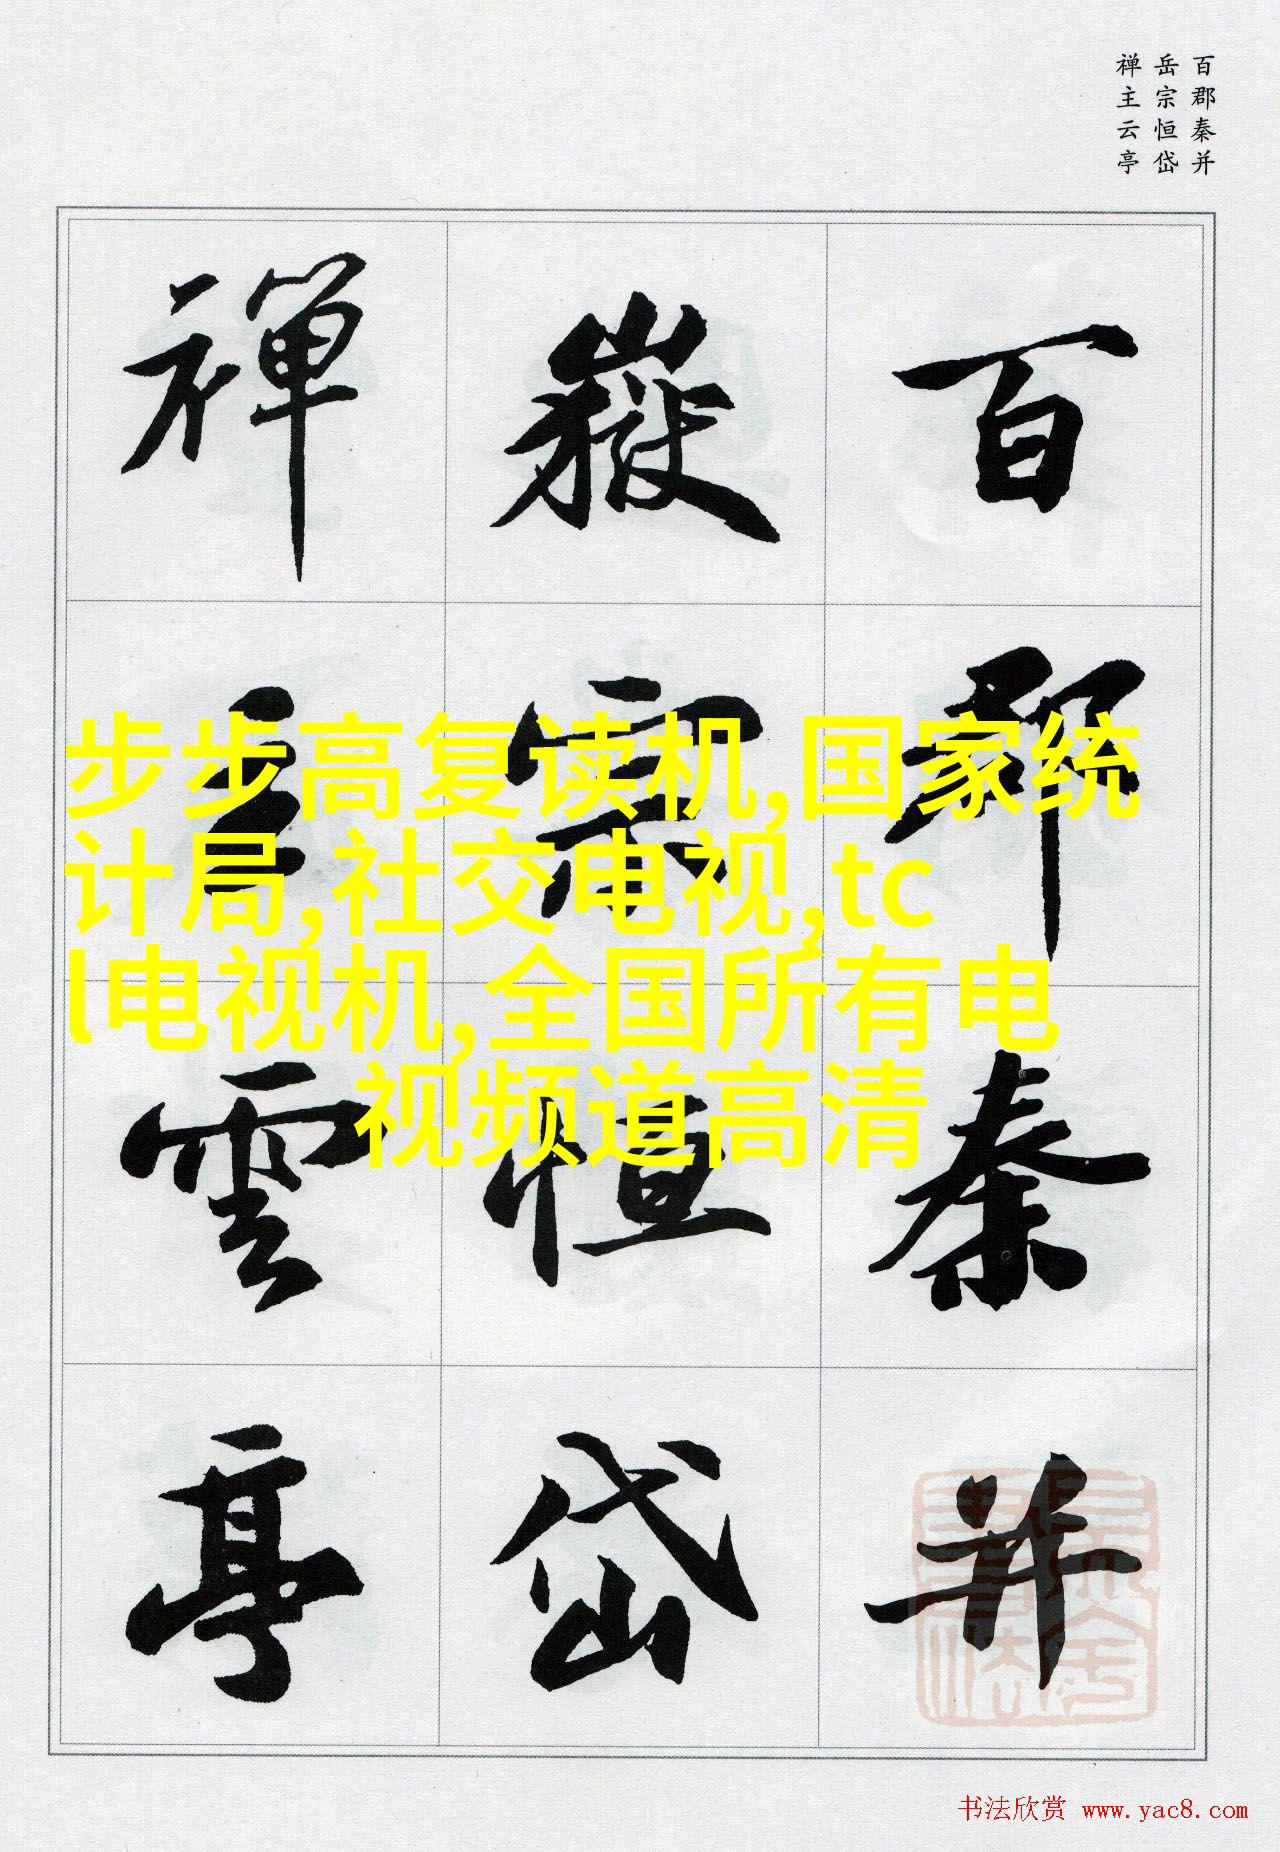 百郡秦并
岳宗恒岱
禅主云亭
百郡秦并
嶽宗恒岱
禪主雲亭
步步高复读机,国家统
计局,社交电视,tc
l电视机,全国所有电
视频道高清
书法欣赏 www.yac8.com